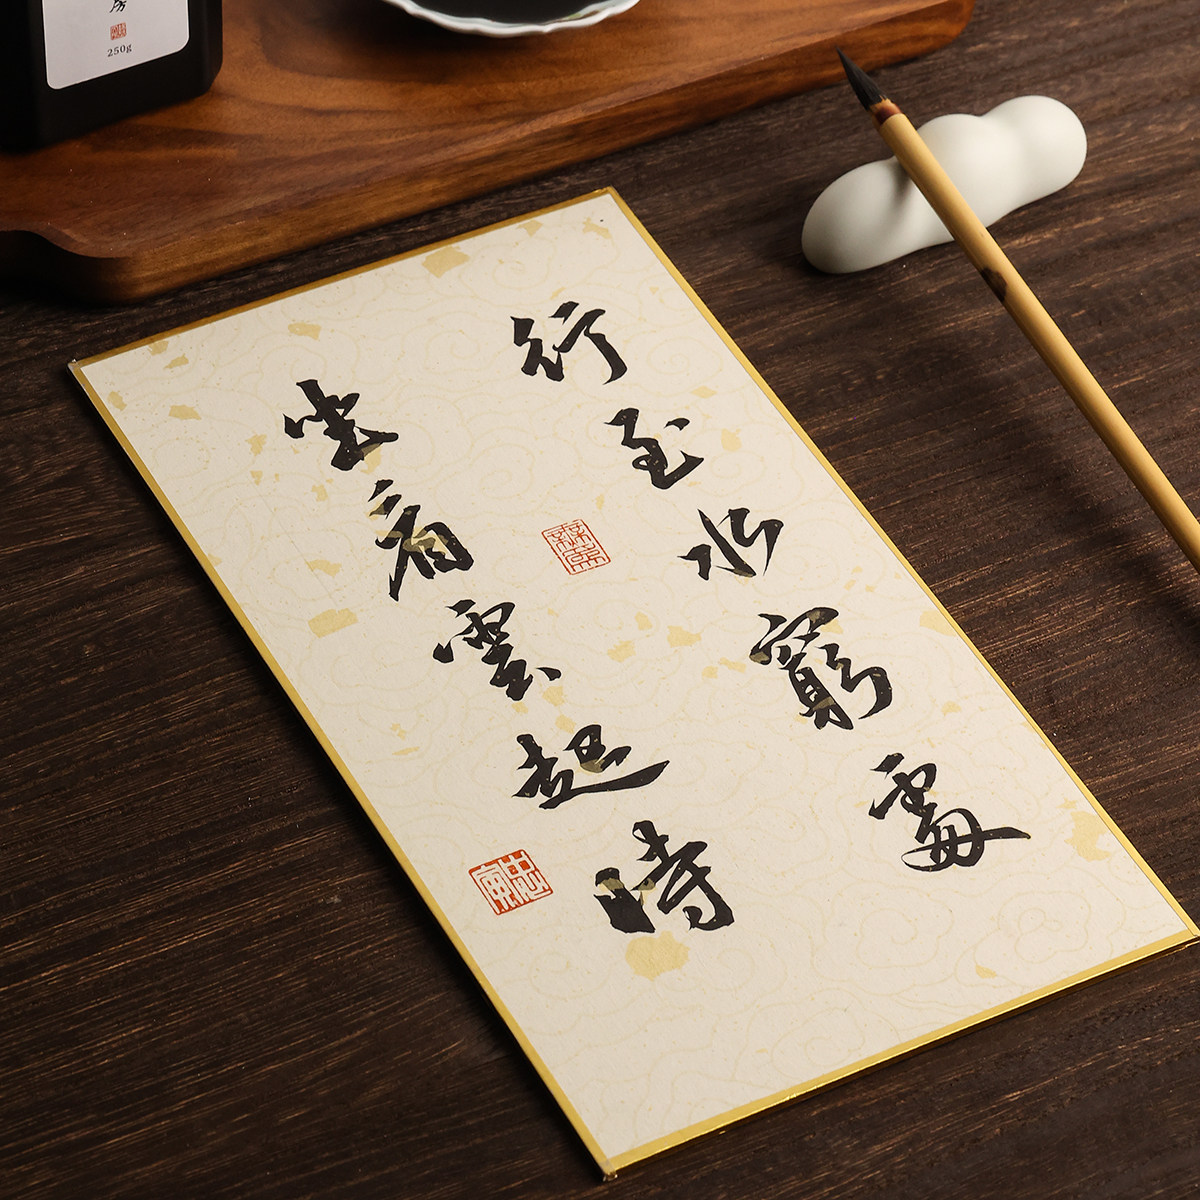 行至水窮處
坐看雲起時
250g